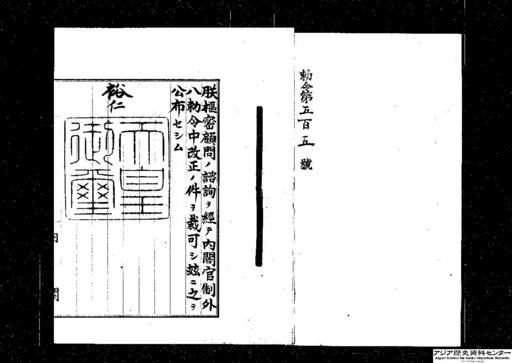 勅令第五百五號
朕樞密顧問ノ諮詢ヲ經テ內閣官制外
八勅令中改正ノ件ヲ裁可シ玆ニ之ヲ
公布セシム
裕仁
天皇
御璽
內
閣
アジア歴史資料センター
Japan Center for Asian Historical Records